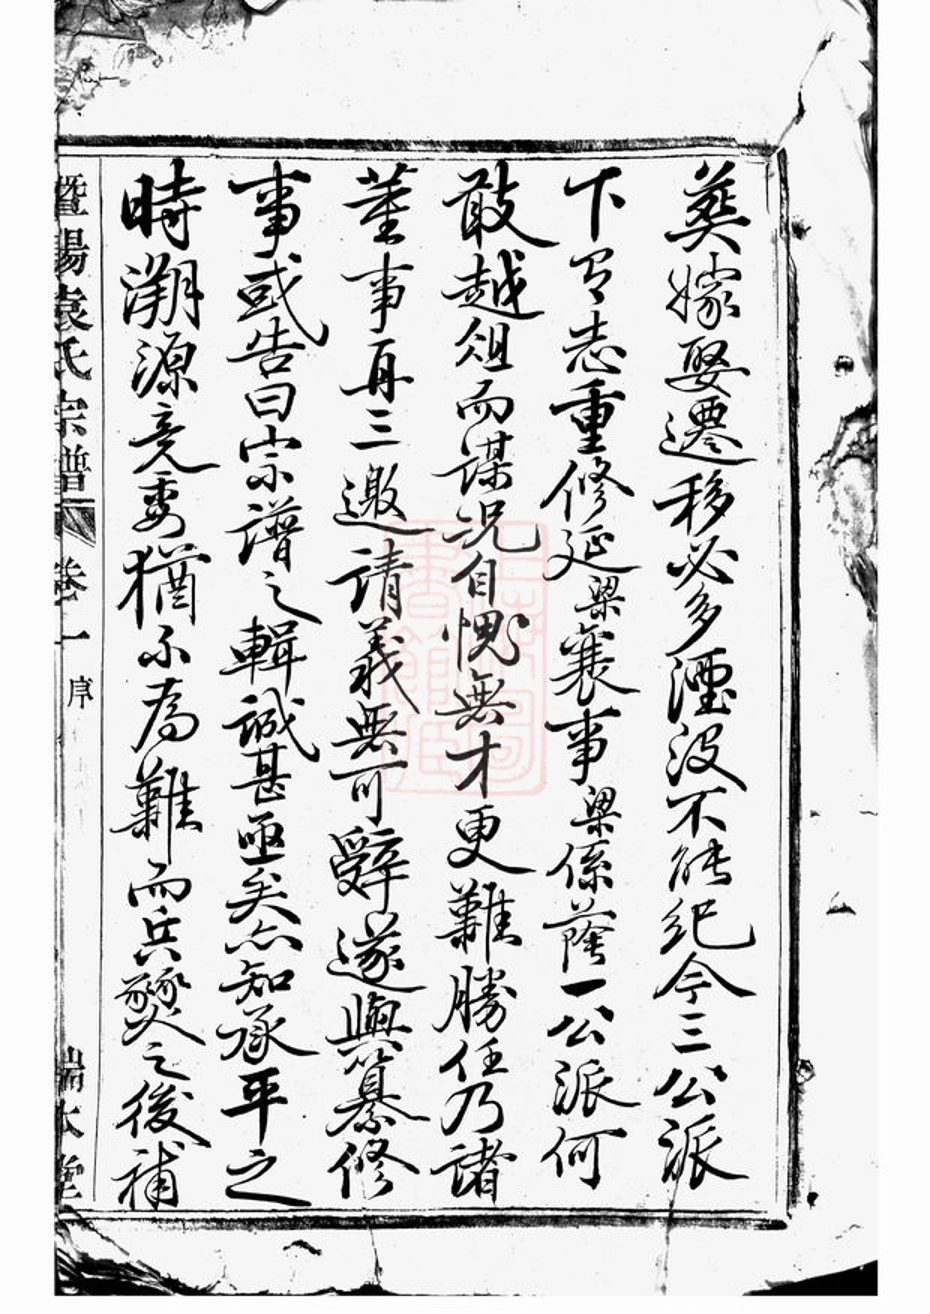 葬嫁娶遷移必多湮沒不能紀今三公派
下有志重修延梁襄事梁係蔭一公派何
敢越俎而謀況自愧無才更難勝任乃諸
董事再三邀請義無可辭遂與纂修
事或告曰宗譜之輯誠甚亟矣亦知承平之
時溯源竟委猶不為難而兵燹之後補
暨陽袁氏宗譜 卷一 序 瑞本堂